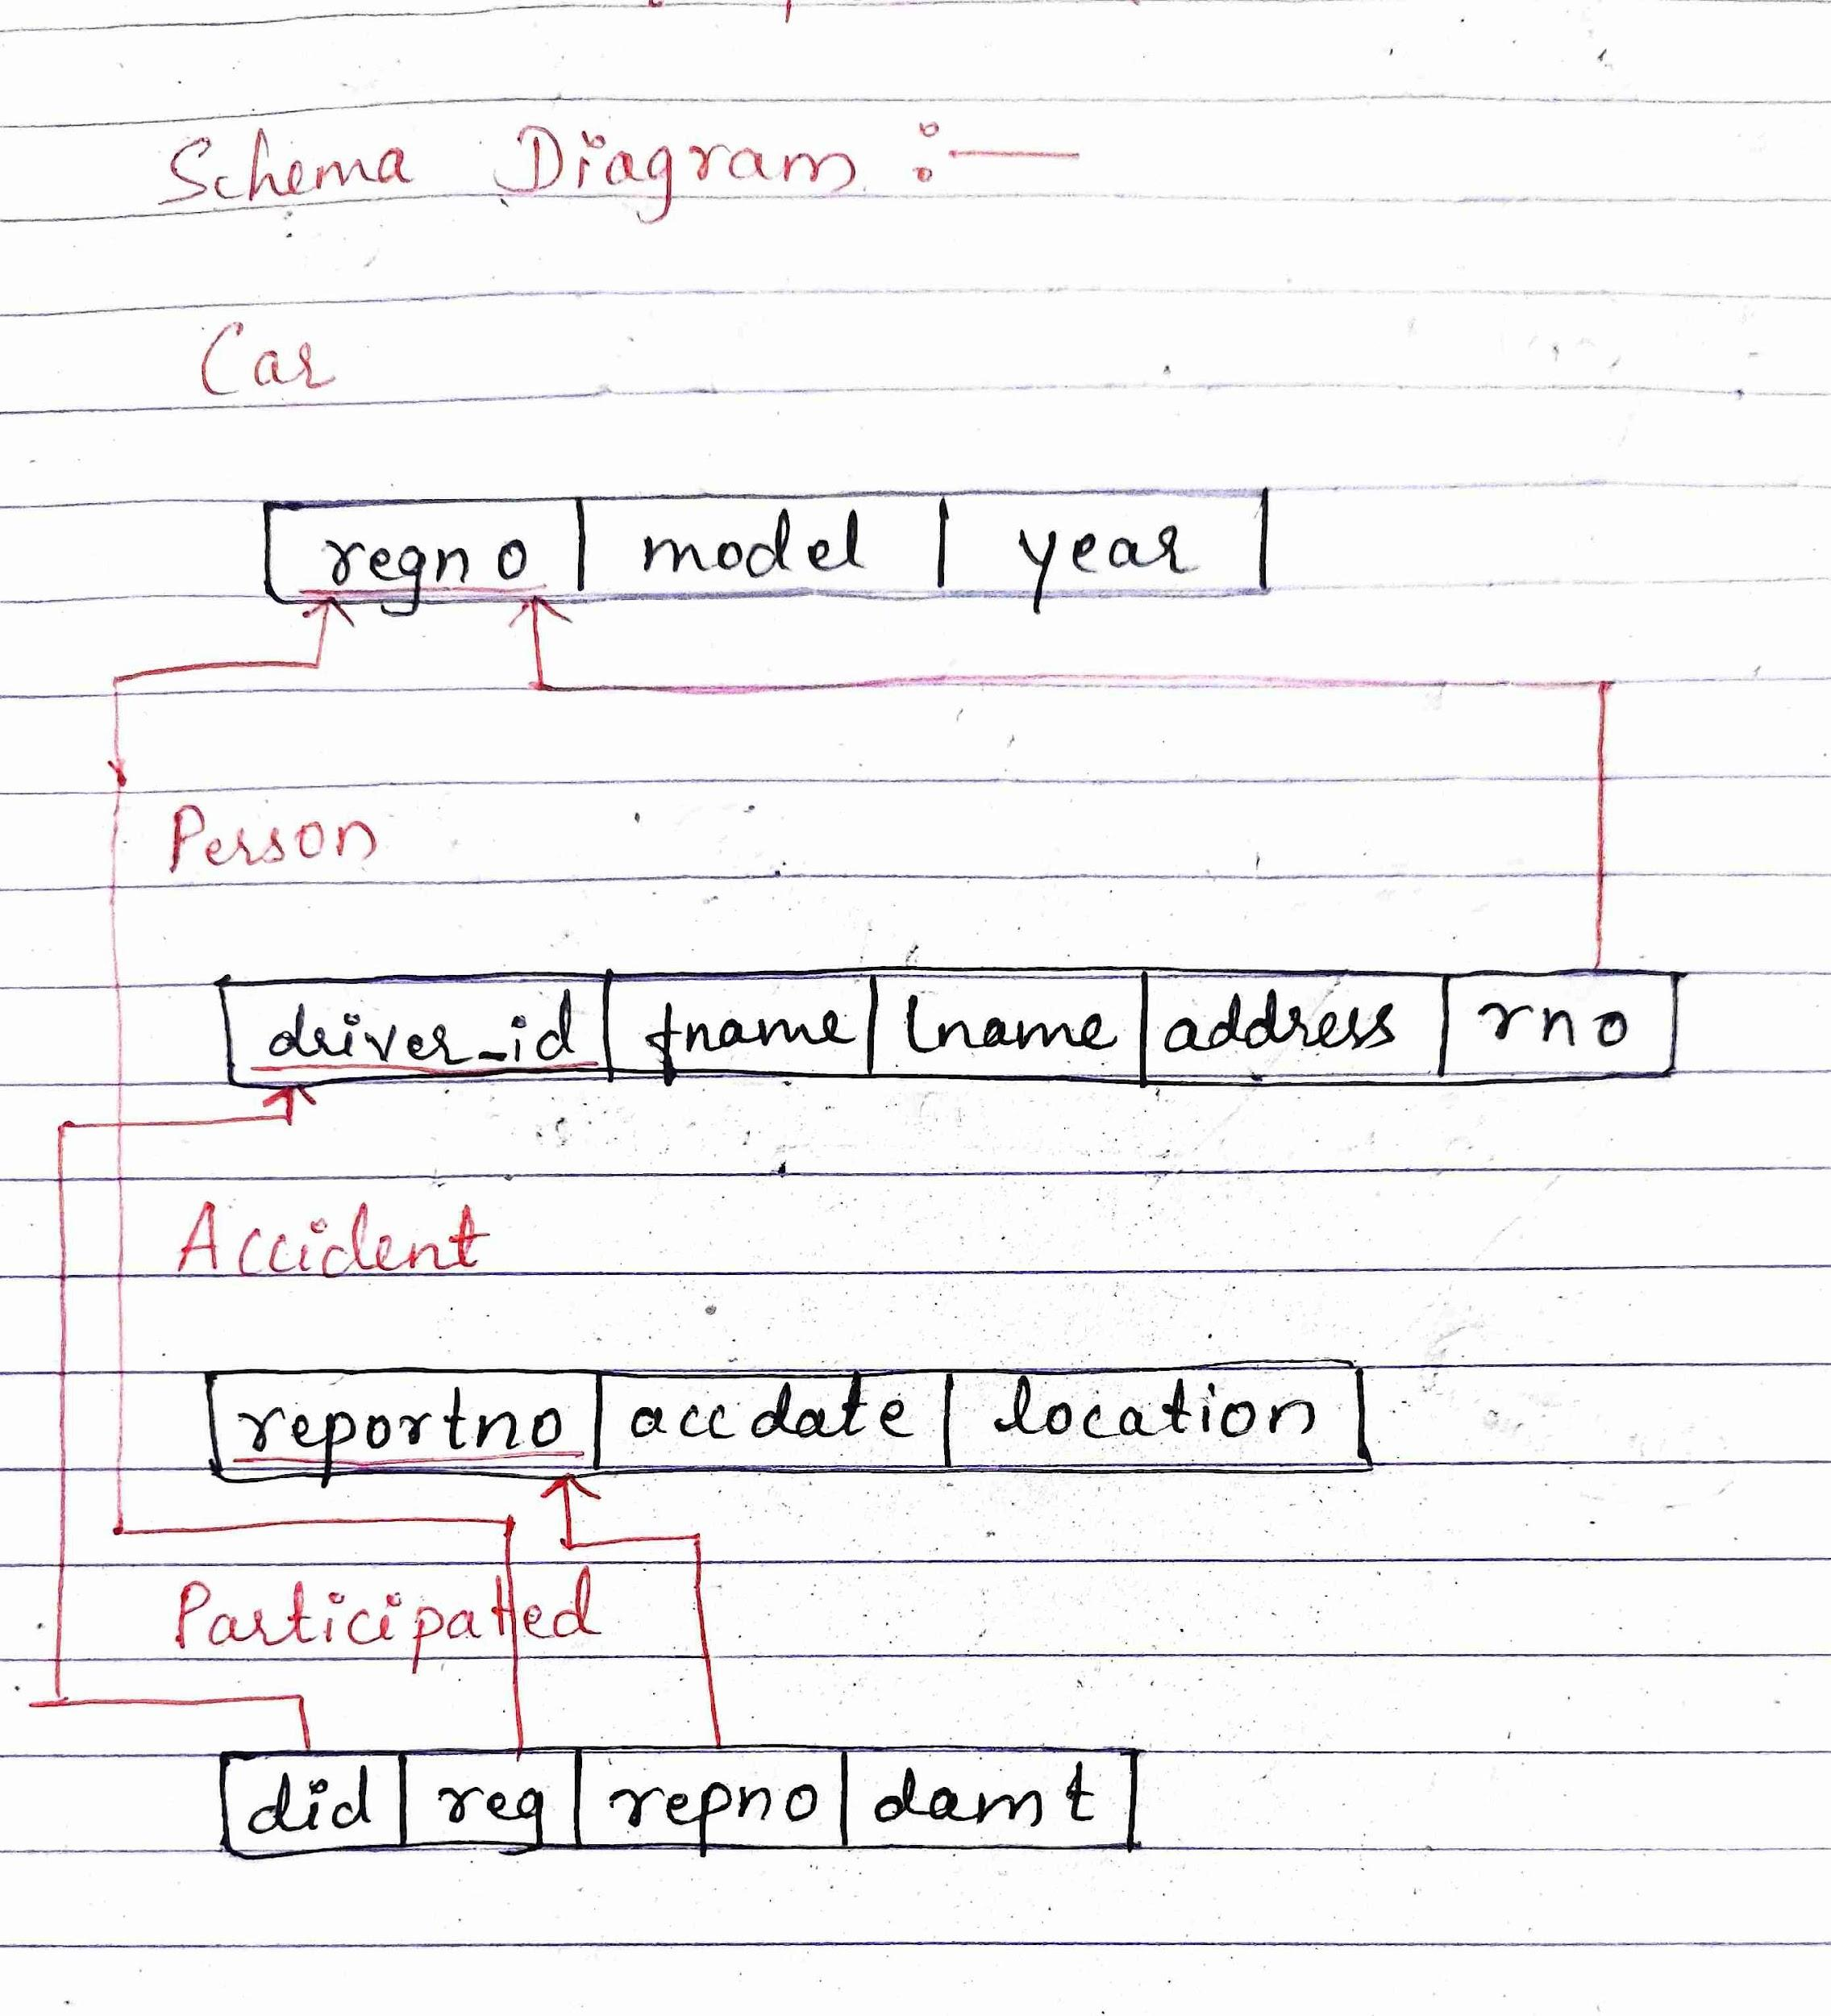 Schema Diagram :-
Car
regno model year
Person
driver_id fname lname address rno
Accident
reportno accdate location
Participated
did reg repno damt